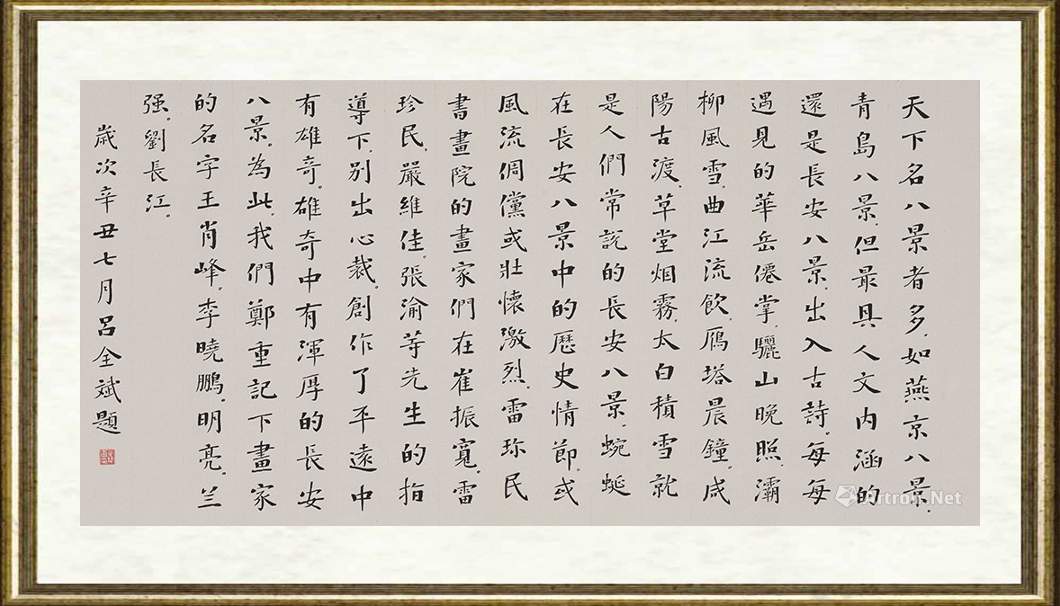 天下名八景者多.如燕京八景.
青島八景.但最具人文内涵的
還是長安八景.出入古詩.每每
遇見的華岳僊掌.驪山晚照.灞
柳風雪.曲江流飲.鴈塔晨鐘.咸
陽古渡.草堂烟霧.太白積雪就
是人們常説的長安八景.蜿蜒
在長安八景中的歷史情節.或
風流倜儻或壯懷激烈.雷珎民
書畫院的畫家們在崔振寬.雷
珍民.嚴維佳.張渝等先生的指
導下.別出心裁.創作了平遠中
有雄奇.雄奇中有渾厚的長安
八景.為此.我們鄭重記下畫家
的名字王肖峰.李曉鵬.明亮.兰
强.劉長江.
歲次辛丑七月呂全斌題
Artron.Net